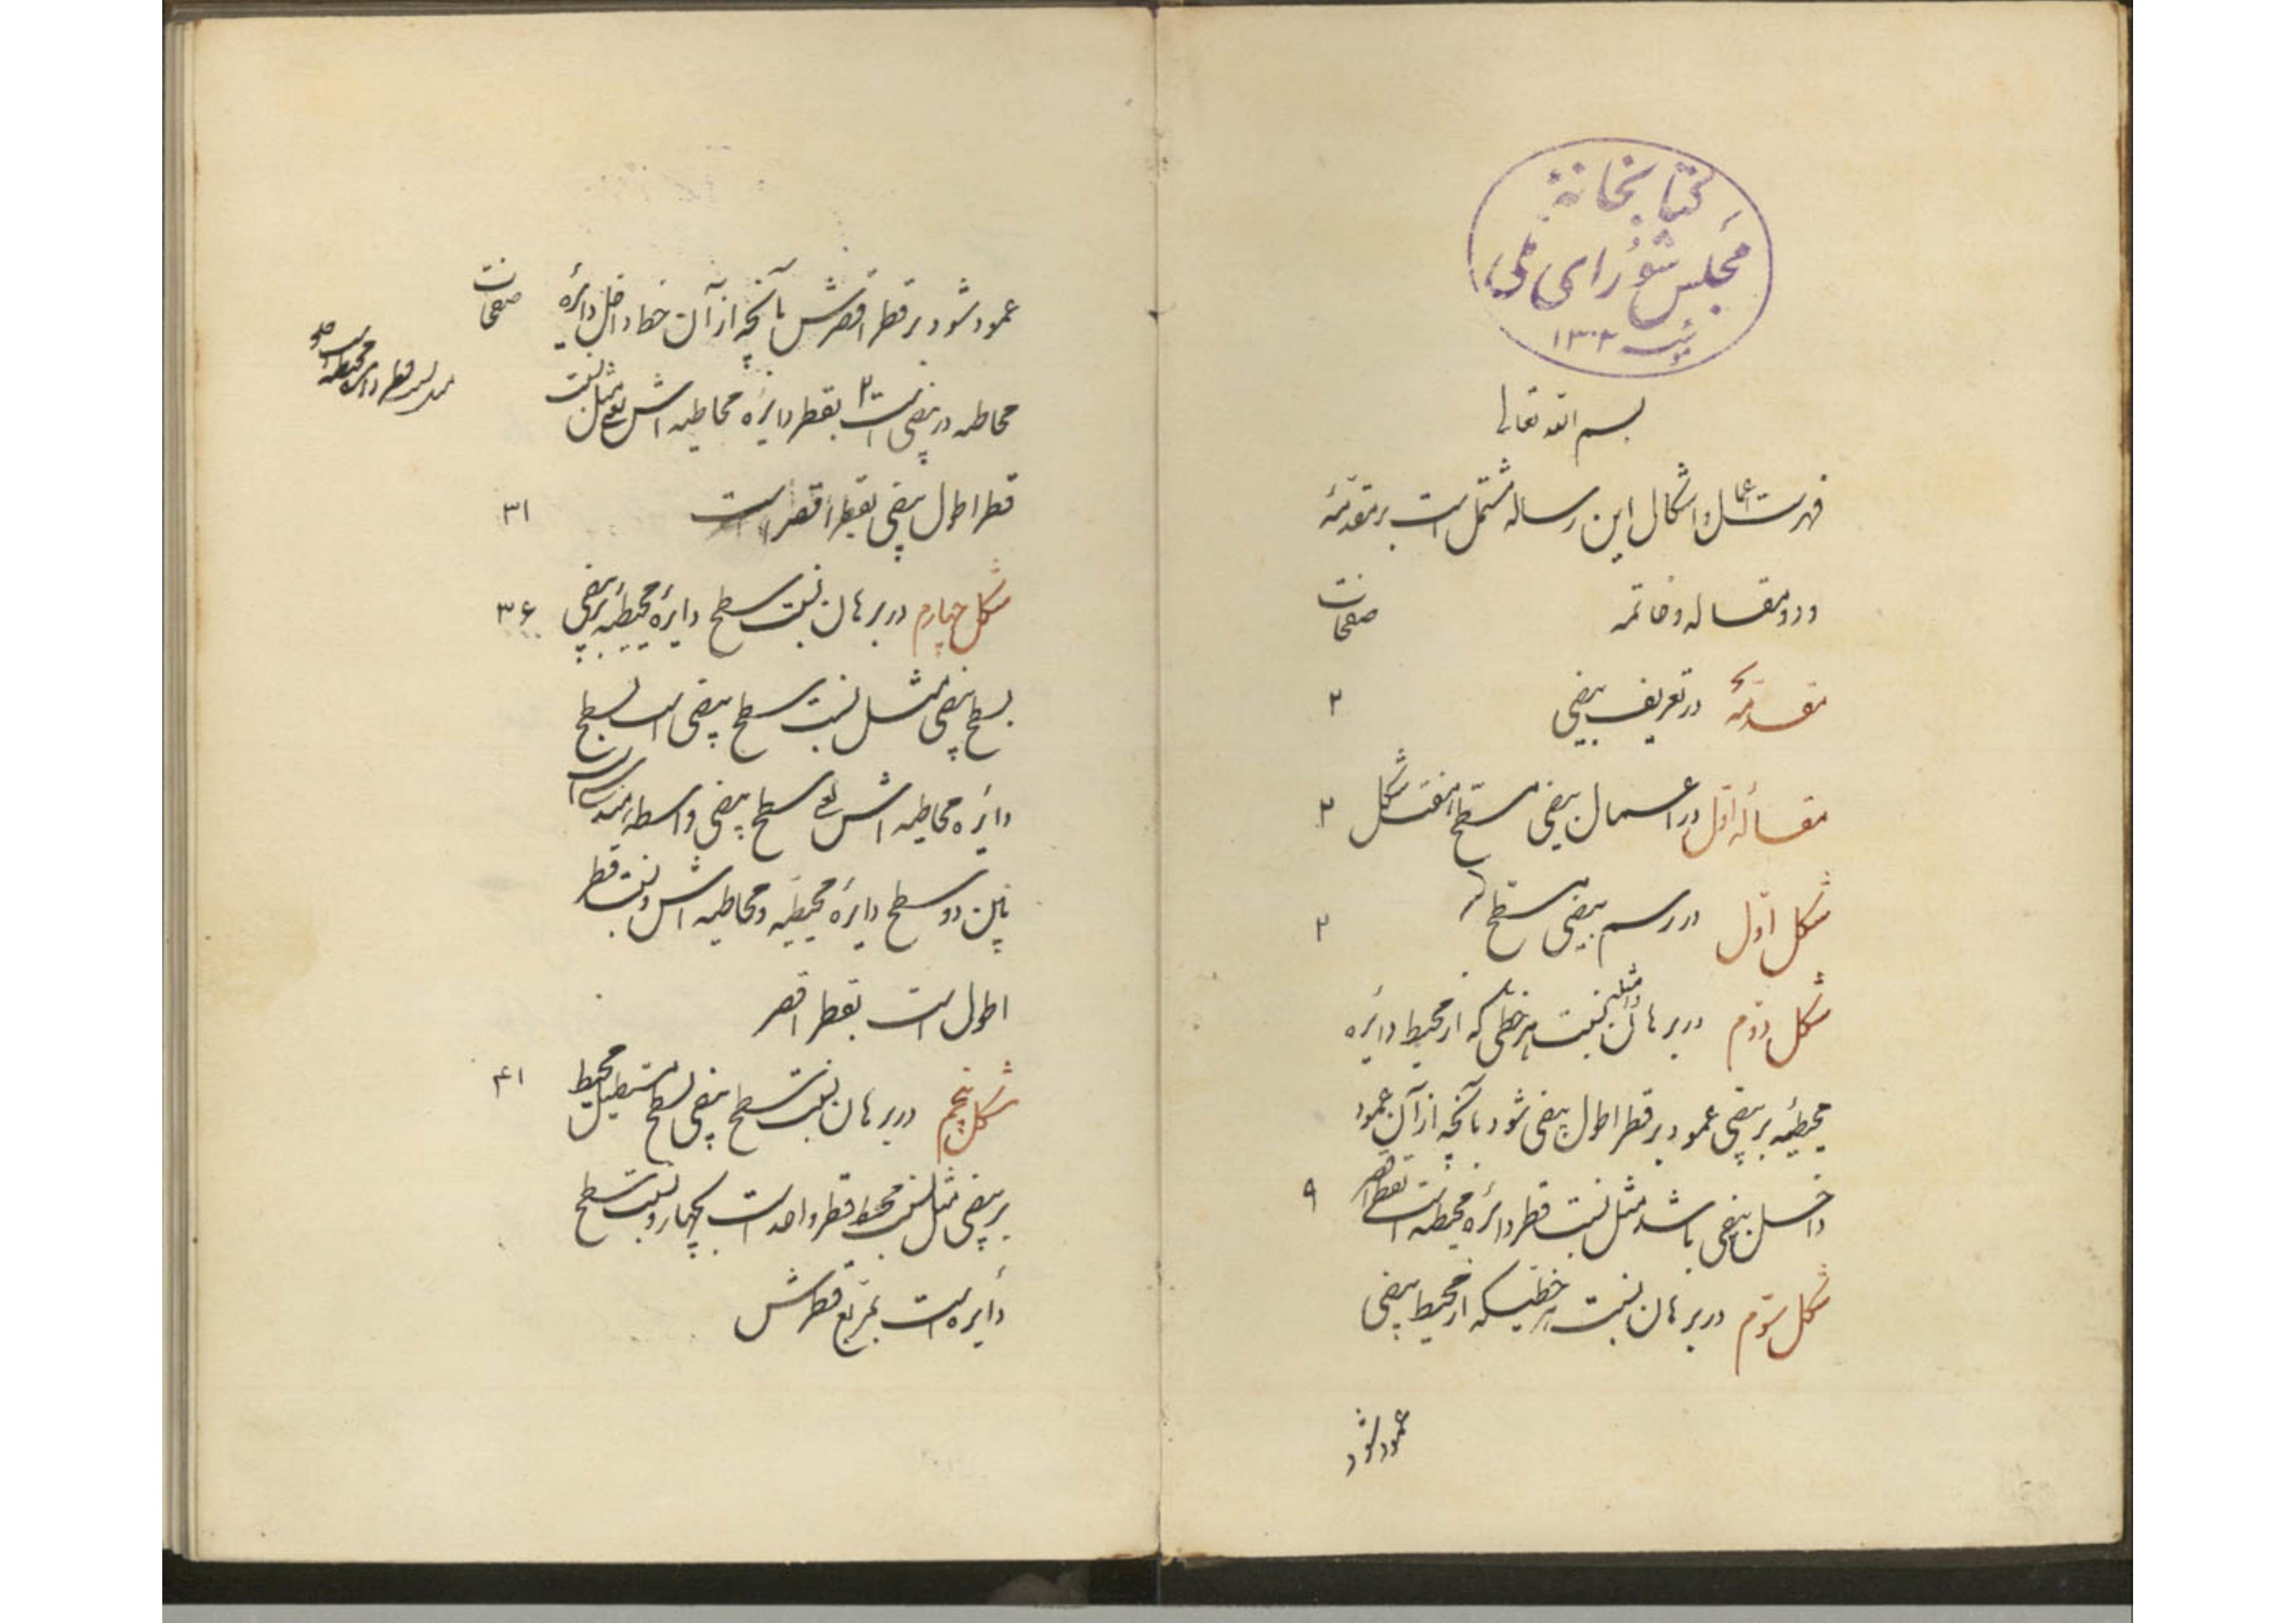 کتابخانهٔ
مجلس شورای ملی
۱۳۰۲
بسم الله تعالی
فهرست اعمال و اشکال این رساله مشتمل است بر مقدمهٔ
و دو مقاله و خاتمه صفحات
مقدمهٔ در تعریف بیضی ۲
مقالهٔ اول در اعمال بیضی مسطح هفت شکل ۳
شکل اول در رسم بیضی مسطح ۳
شکل دوم در برهان نسبت هر خطی که از محیط دایره
محیطیه بر بیضی عمود بر قطر اطول بیضی شود بآنچه از آن عمود
داخل بیضی باشد مثل نسبت قطر دایرهٔ محیطیه است بقطر اقصر ۹
شکل سوم در برهان نسبت هر خطیکه از محیط بیضی
عمود شود
عمود شود بر قطر اقصرش بآنچه از آن خط داخل دایرهٔ صفحات
محاطیه در بیضی است بقطر دایرهٔ محاطیه اش یعنی مثل نسبت
قطر اطول بیضی بقطر اقصر است ۳۱
شکل چهارم در برهان نسبت سطح دایرهٔ محیطیهٔ بر بیضی ۳۶
بسطح بیضی مثل نسبت سطح بیضی است بسطح
دایرهٔ محاطیه اش یعنی سطح بیضی واسطه
مابین دو سطح دایرهٔ محیطیه و محاطیه اش و نسبت قطر
اطول است بقطر اقصر
شکل پنجم در برهان نسبت سطح بیضی بسطح مستطیل محیط ۴۱
بر بیضی مثل نسبت محیط قطر واحد است بچهار و نسبت سطح
دایره است بمربع قطرش